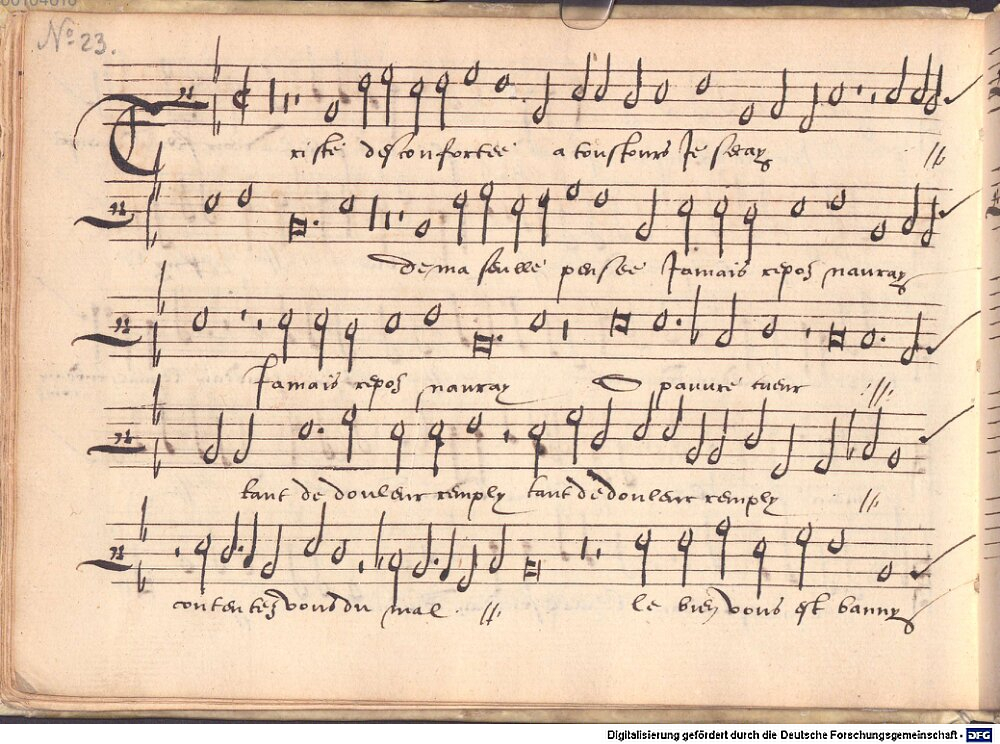 00104010
No 23.
Triste desconfortee a tousiours Je seray //
de ma seulle pensee Jamais repos nauray
Jamais repos nauray O pauure cueur ://:
tant de douleur remply tant de douleur remply //
contentez vous du mal . //. le bien vous est banny
Digitalisierung gefördert durch die Deutsche Forschungsgemeinschaft - DFG